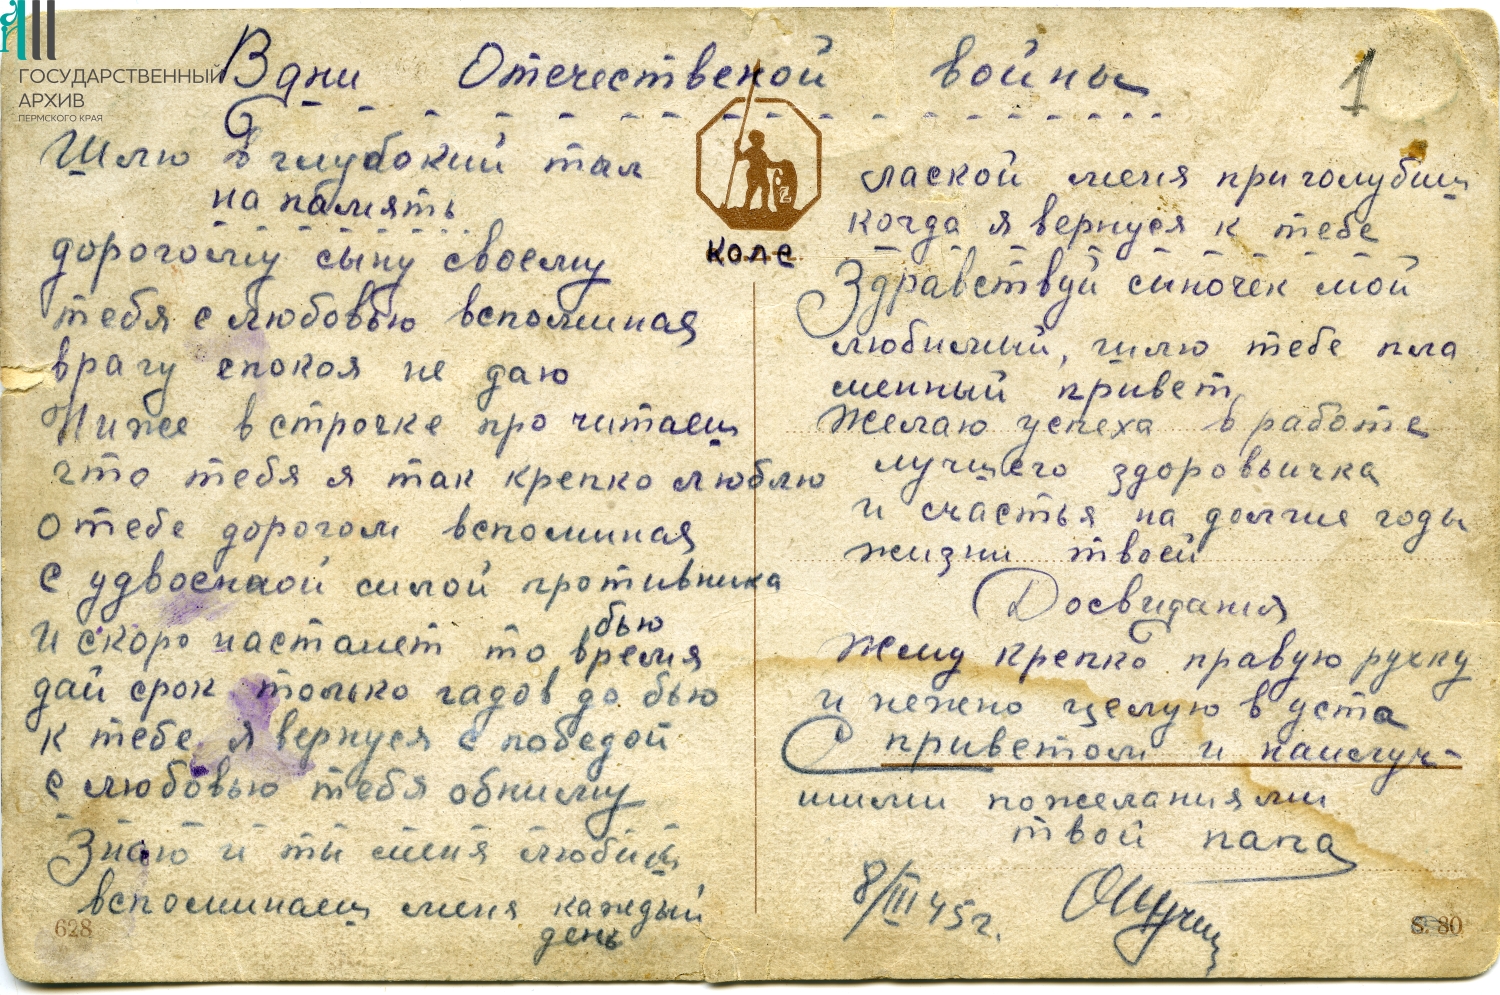 ГОСУДАРСТВЕННЫЙ
АРХИВ
ПЕРМСКОГО КРАЯ
В дни Отечественой войны
1
Шлю в глубокий тыл
на память
дорогому сыну своему
тебя с любовью вспоминая
врагу спокоя не даю
Ниже в строчке прочитаеш
что тебя я так крепко люблю
о тебе дорогом вспоминая
с удвоенной силой противника
бью
И скоро настанет то время
дай срок только гадов добью
к тебе я вернуся с победой
с любовью тебя обниму
Знаю и ты меня любиш
вспоминаеш меня каждый
день
628
Коле
лаской меня приголубиш
когда я вернуся к тебе
Здравствуй синочек мой
любимий, шлю тебе пла
менный привет
Желаю успеха в работе
лучшего здоровьичка
и счастья на долгие годы
жизни твоей
Досвидания
Жму крепко правую ручку
и нежно целую в уста
С приветом и наилуч-
шими пожеланиями
твой папа
8/III 45 г.
S. 80